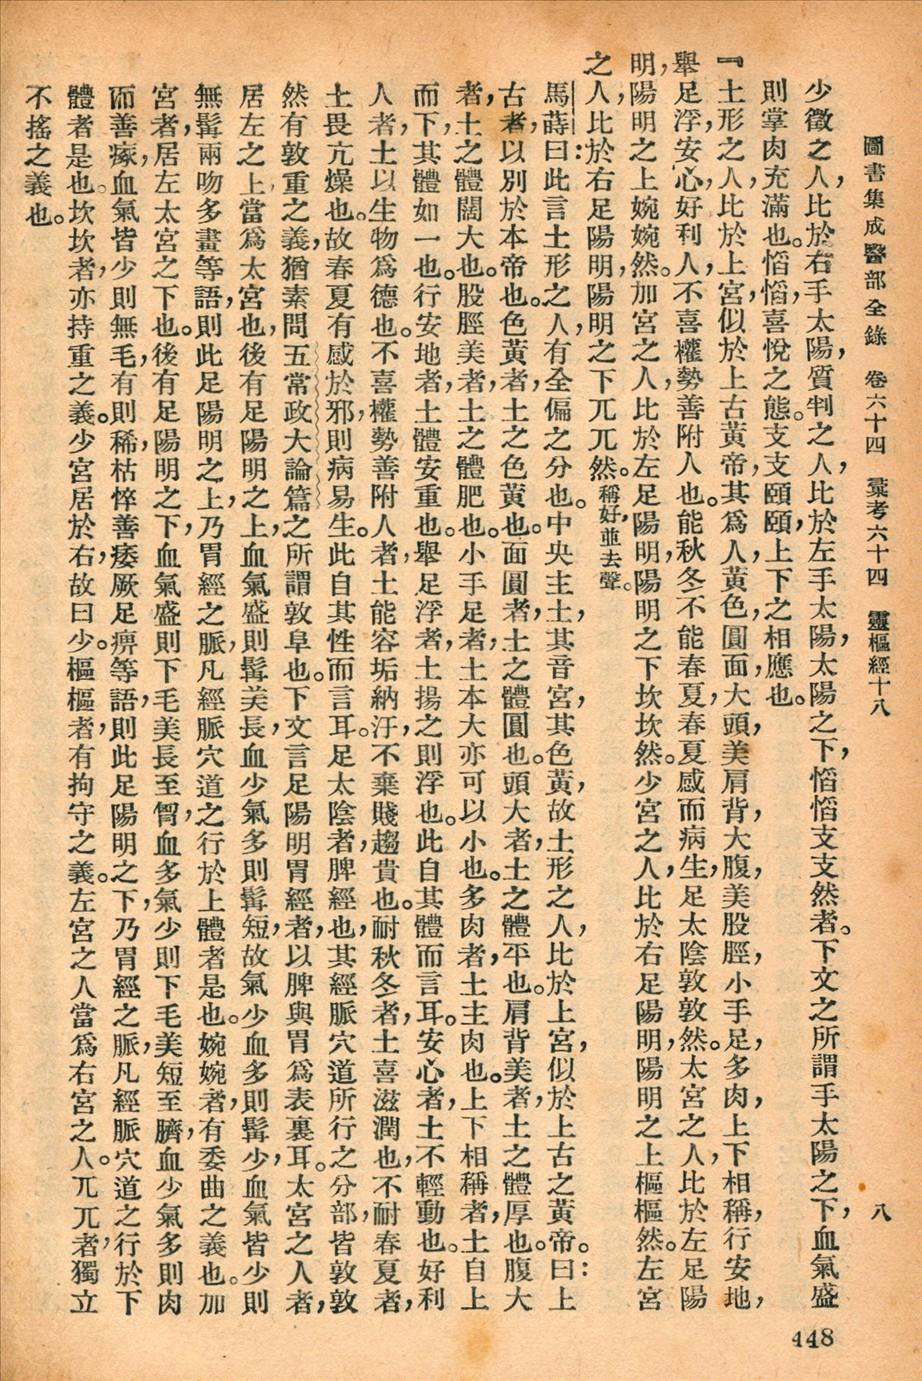 圖書集成醫部全錄　卷六十四　彙考六十四　靈樞經十八　八
少徵之人，比於右手太陽，質判之人，比於左手太陽，太陽之下，慆慆支支然者。下文之所謂手太陽之下，血氣盛
則掌肉充滿也。慆慆，喜悅之態。支支頤頤，上下之相應也。
『土形之人，比於上宮，似於上古黃帝，其爲人，黃色，圓面，大頭，美肩背，大腹，美股脛，小手足，多肉，上下相稱，行安地，
舉足浮，安心，好利人，不喜權勢善附人也。能秋冬不能春夏，春夏感而病生，足太陰敦敦然。太宮之人，比於左足陽
明，陽明之上婉婉然。加宮之人，比於左足陽明，陽明之下坎坎然。少宮之人，比於右足陽明，陽明之上樞樞然。左宮
之人，比於右足陽明，陽明之下兀兀然。稱好，並去聲。
馬蒔曰：此言土形之人，有全偏之分也。中央主土，其音宮，其色黃，故土形之人，比於上宮，似於上古之黃帝。曰：上
古者，以別於本帝也。色黃者，土之色黃也。面圓者，土之體圓也。頭大者，土之體平也。肩背美者，土之體厚也。腹大
者，土之體闊大也。股脛美者，土之體肥也。小手足者，土本大亦可以小也。多肉者，土主肉也。上下相稱者，土自上
而下，其體如一也。行安地者，土體安重也。舉足浮者，土揚之則浮也。此自其體而言耳。安心者，土不輕動也。好利
人者，土以生物爲德也。不喜權勢善附人者，土能容垢納汙，不棄賤趨貴也。耐秋冬者，土喜滋潤也，不耐春夏者，
土畏亢燥也。故春夏有感於邪，則病易生。此自其性而言耳。足太陰者，脾經也，其經脈穴道所行之分部，皆敦敦
然有敦重之義，猶素問五常政大論篇之所謂敦阜也。下文言足陽明胃經者，以脾與胃爲表裏耳。太宮之人者，
居左之上，當爲太宮也，後有足陽明之上，血氣盛則髯美長，血少氣多則髯短，故氣少血多則髯少，血氣皆少則
無髯兩吻多畫等語，則此足陽明之上，乃胃經之脈，凡經脈穴道之行於上體者是也。婉婉者，有委曲之義也。加
宮者，居左太宮之下也。後有足陽明之下，血氣盛則下毛美長至胷，血多氣少則下毛美短至臍，血少氣多則肉
而善瘃，血氣皆少則無毛，有則稀，枯悴善痿厥足痹等語，則此足陽明之下，乃胃經之脈，凡經脈穴道之行於下
體者是也。坎坎者，亦持重之義。少宮居於右，故曰少。樞樞者，有拘守之義。左宮之人當爲右宮之人。兀兀者，獨立
不搖之義也。
448